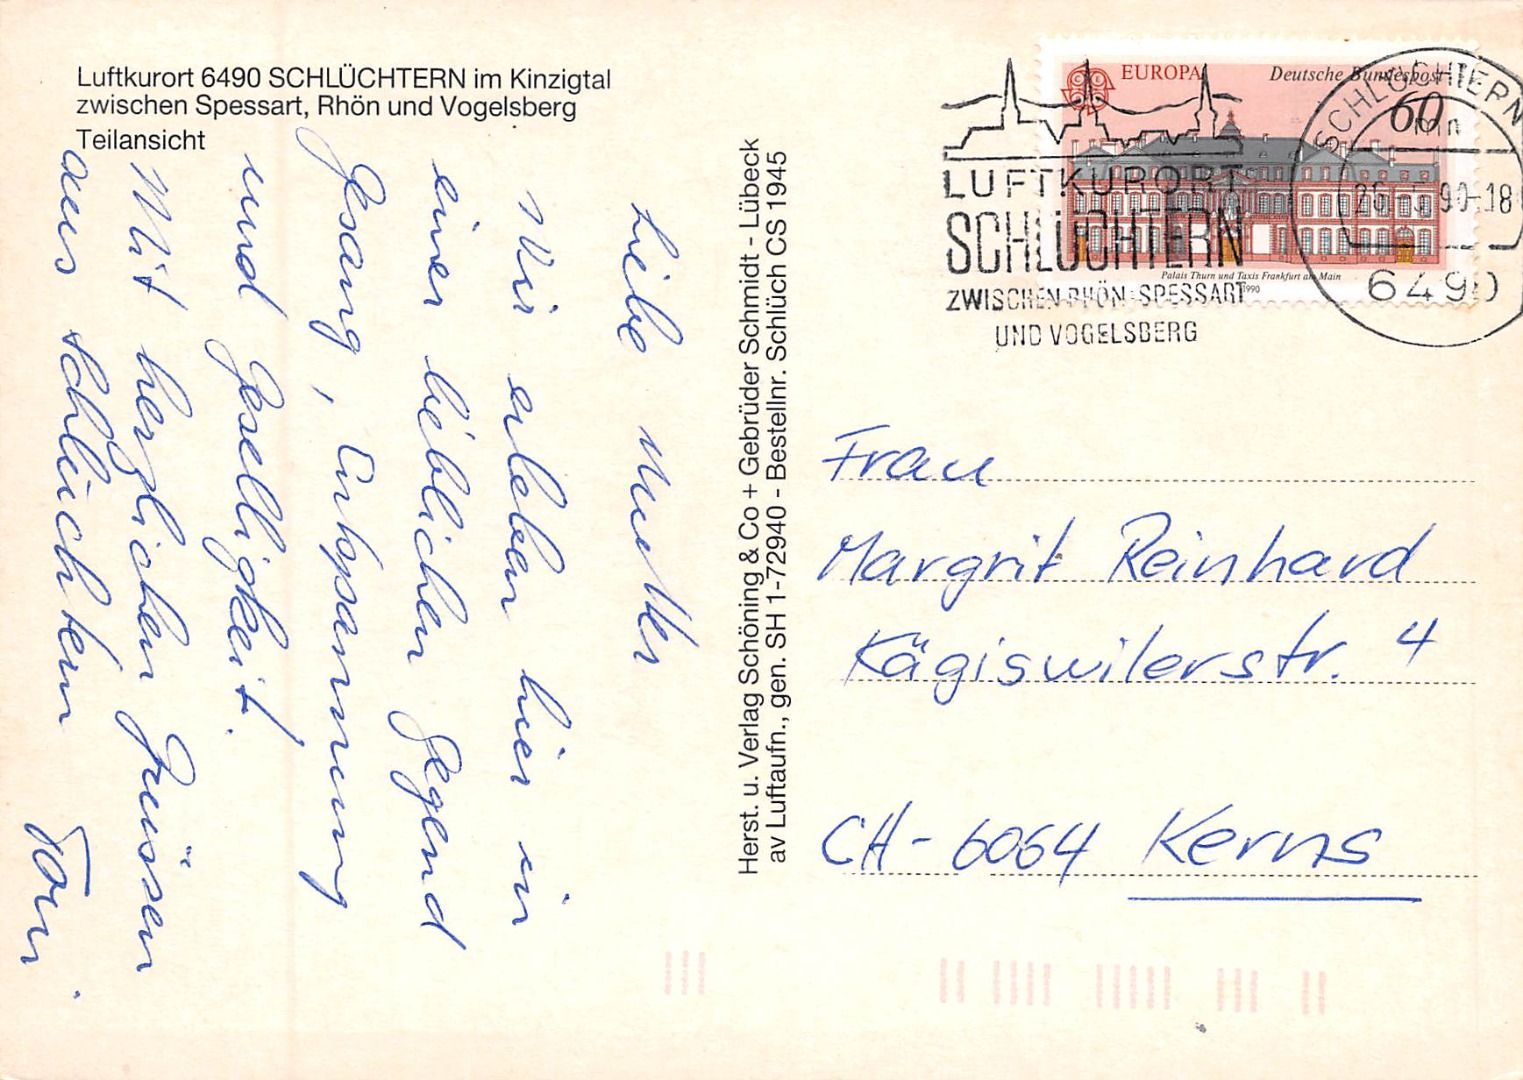 Luftkurort 6490 SCHLÜCHTERN im Kinzigtal
zwischen Spessart, Rhön und Vogelsberg
Teilansicht
Liebe Mutter
Wir erleben hier in
einer lieblichen Gegend
Gesang, Entspannung
und Geselligkeit.
Mit herzlichen Grüssen
aus Schlüchtern
Toni.
Herst. u. Verlag Schöning & Co + Gebrüder Schmidt - Lübeck
av Luftaufn., gen. SH 1-72940 - Bestellnr. Schlüch CS 1945
EUROPA
Deutsche Bundespost
60
Palais Thurn und Taxis Frankfurt am Main
1990
LUFTKURORT
SCHLÜCHTERN
ZWISCHEN RHÖN-SPESSART
UND VOGELSBERG
SCHLÜCHTERN
mn
90-18
6490
Frau
Margrit Reinhard
Kägiswilerstr. 4
CH-6064 Kerns